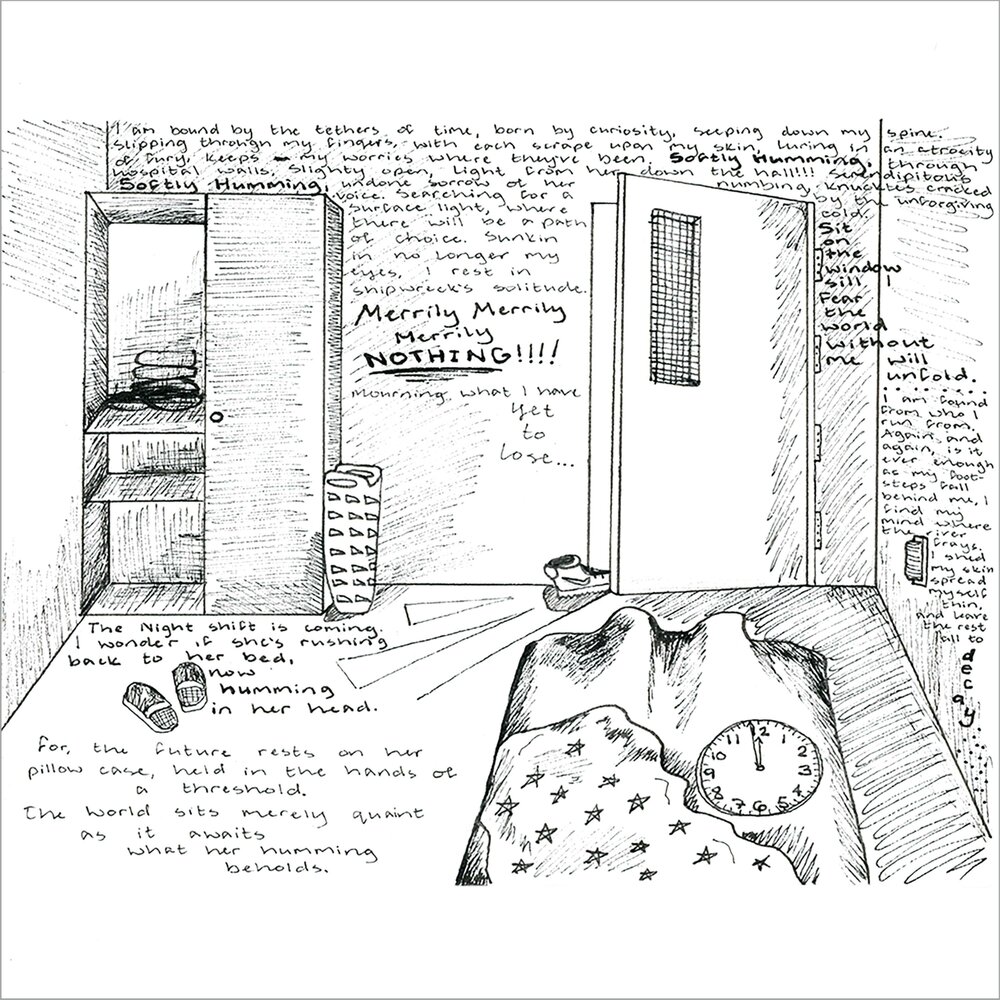 I am bound by the tethers of time, born by curiosity, seeping down my spine.
slipping through my fingers, with each scrape upon my skin, luring in an atrocity
of fury, keeps my worries where they've been. Softly Humming, through
hospital walls, slighty open, light from her down the hall!!! Serendipitous
Softly Humming, undone sorrow of her numbing, knuckles cracked
voice. Searching for a by the unforgiving
surface light, where cold.
there will be a path
of choice. Sunkin
in no longer my
eyes, I rest in
shipwreck's solitude.
Merrily Merrily
Merrily
NOTHING!!!!
mourning, what I have
yet
to
lose...
Sit
on
the
window
sill I
Fear
the
world
without
me will
unfold.
I am found
from who I
run from.
Again, and
again, is it
ever enough
as my foot-
steps fall
behind me, I
find my
mind where
the river
frays,
I shed
my skin
spread
myself
thin,
and leave
the rest
all to
decay
The Night shift is coming.
I wonder if she's rushing
back to her bed,
now
humming
in her head.
for, the future rests on her
pillow case, held in the hands of
a threshold.
The world sits merely quaint
as it awaits
what her humming
beholds.
12
1
2
3
4
5
6
7
8
9
10
11